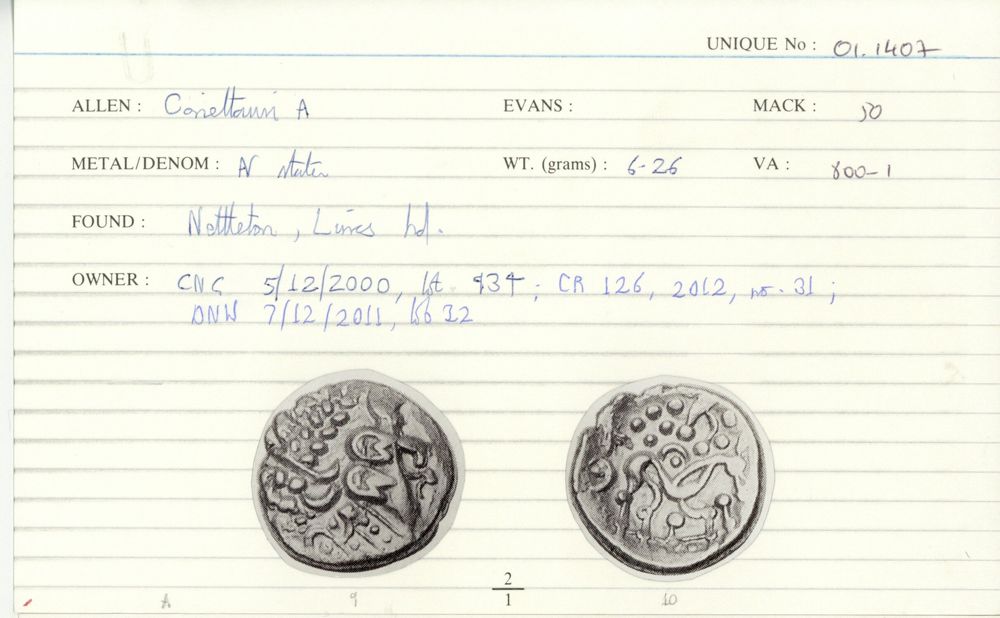 UNIQUE No : 01.1407
ALLEN : Corieltauvi A EVANS : MACK : 50
METAL/DENOM : AV stater WT. (grams) : 6-26 VA : 800-1
FOUND : Nettleton, Lincs hd.
OWNER : CNG 5/12/2000, lot 934; CR 126, 2012, no. 31;
DNW 7/12/2011, lot 32
2
A 9 1 10